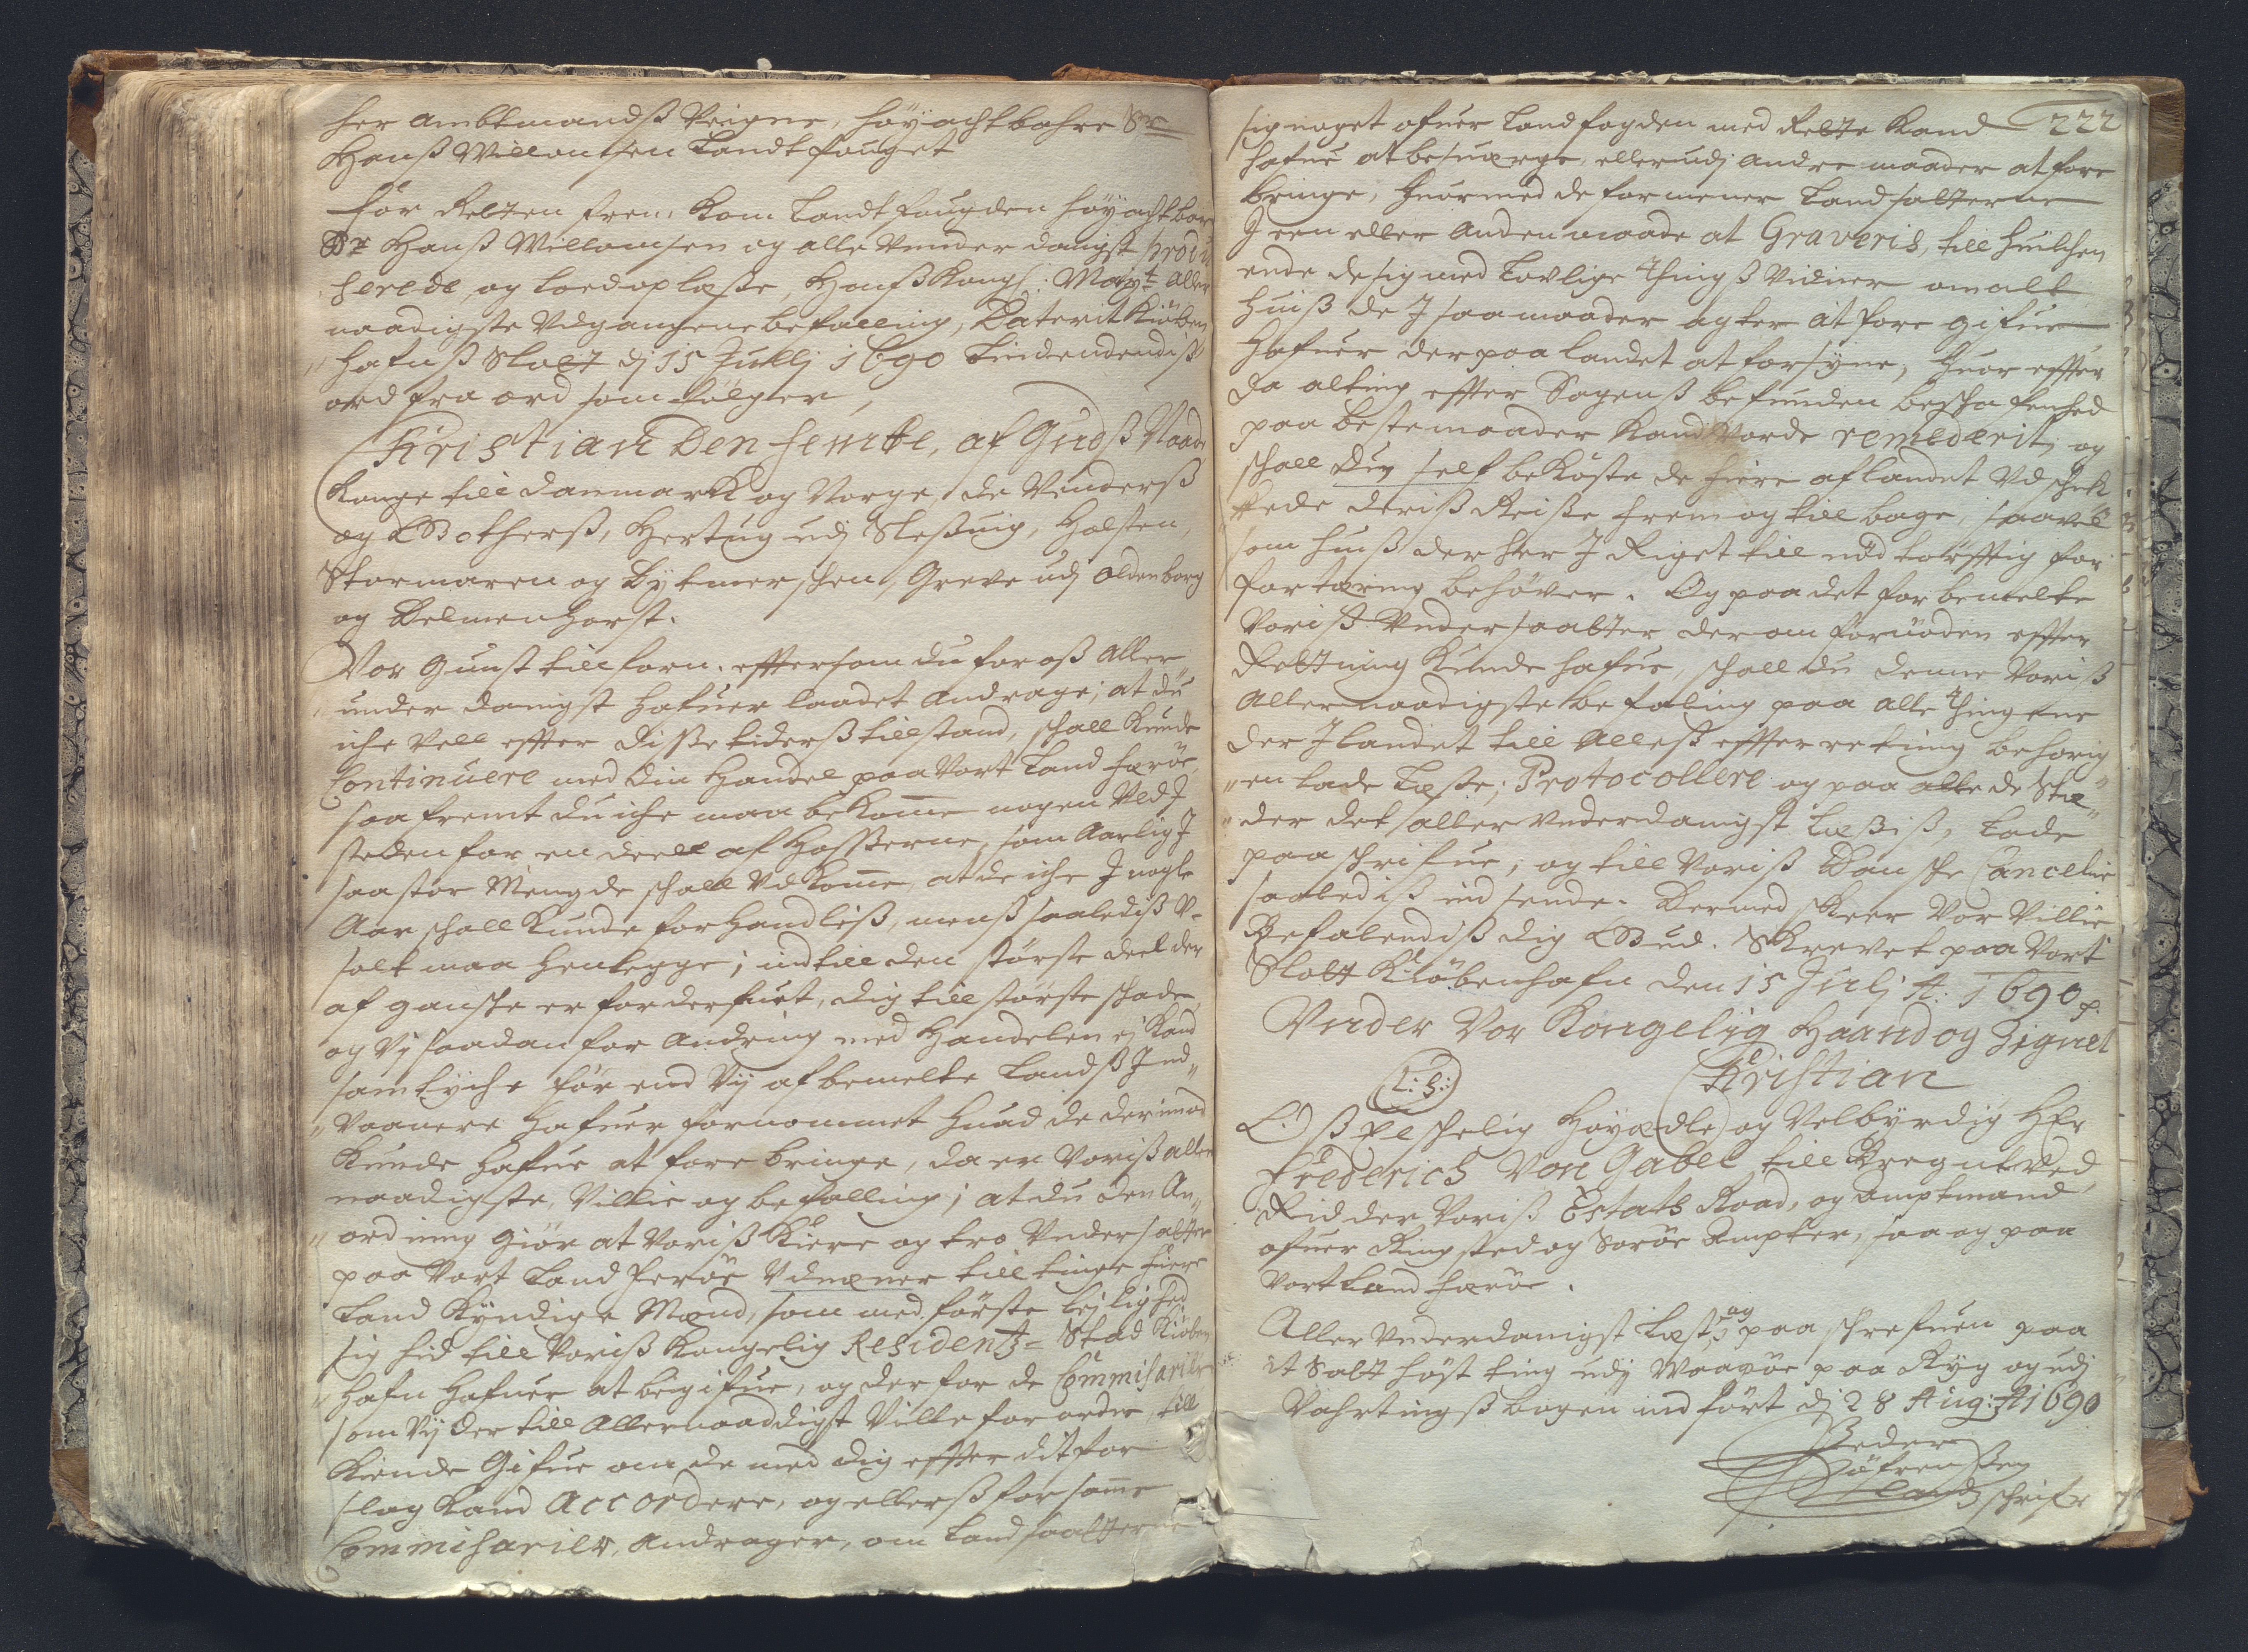 her Ambtmandß Veigne, höyachtbahre Sr
Hanß Willomsen Landtfouget
För Retten frem, kom Landtfougden höyachtbar
Sr Hanß Willomsen og alle Vnderdanigst produ
serede, og lod oplæste, Hanß Kongl: Mayt: aller
naadigste Udgangene befalling, Daterit Kiöben
hafnß Slott dj 15 Jullj 1690 Liudendendiß
ord fra ord som fölger,
Kristian Den femte, af Gudß Naade
Konge till Danmark og Norge, de Venderß
og Gotherß, Hertug udj Sleßuig, Holsten,
Stormaren og Dytmerschen, Greve udj Oldenborg
og Delmenhorst.
Vor Gunst tillforn. efftersom du for oß Aller
under danigst hafuer ladet Andrage; at du
iche vell effter Disse tiderß tillstand, schall kunde
Continuere med Din Handel paa Vort Land Færöe,
saa fremt du iche maa bekomme nogen Ved I
steden for en deell af Hosserne, som Aarlig I
saa stor Mengde schall Udkomme, at de iche I nogle
Aar schall kunde forhandliß, menß saalediß U-
solt maa henlegge; indtill den störste deel der
af gansche er forderfuet, dig till störste schade,
og Vj saadan forandring med Handelen ej kand
samtyche för end Vij af bemelte Landß Ind
Vaanere hafuer fornommet huad de derimod
kunde hafue at forebringe, da er Voriß aller
naadigste, Villie og befalling; at du den An
ordning giör at Voriß kiere og tro Vndersotter
paa Vort Land Feröe Udnæner till tinge fiere
Land kyndige Mænd, som med förste lejlighed
sig hid till Voriß Kongelig Residentz= Stad Kiöben
hafn hafuer at begifue, og der for de Commisarier
som Vj der till Allernaaddigst Ville forordne till
kiende Gifue om de med dig effter dit for
slag kand Accordere, og ellerß for samme
Commisarier, Andrager, om Landsaatterne
222
sig noget ofuer Landfogden med Rette kand
hafue at besuærge, eller udj andre maader at fore
bringe, huormed de formener Landsotterne
I een eller Anden maade at Graveris, till huilchen
ende de sig med Lovlige Thingß Vidner om alt
huiß de I saa maader agter at fore gifue
hafuer der paa landet at forsyne, huor effter
da alting effter Sagenß befunden beschafenhed
paa beste maader kand Vorde remederit, og
schall Du self bekoste de fiere af landet Vdschik
kede deriß Reise frem og till bage, saavel
som huiß der her I Riget till nödtörfftig for
fortæring behöver. Og paa det for bemelte
Voriß Vndersaatter der om fornöden effter
Rettning kunde hafue, schall du denne Voriß
Allernaadigste befaling paa alle Thingene
der I landet till Alleß effterretning behörig
en lade Læste; Protocollere og paa alle de Stæ
der det aller Vnderdanigst Læßiß, Lade
paaschrifue, og till Voriß Dansche Cancelie
saalediß indsende. Dermed scheer Vor Villie
Befalendiß dig Gud. Skrevet paa Vort
Slott Kiöbenhafn den 15 Julj A: 1690
Vnder Vor Kongelig Haand og Zignet
Kristian
L: S:
Oß elschelig Höyædle og Velbyrdig HEr
Frederich Von Gabel till Bregnetved
Ridder Voriß Estats Raad, og Amptmand
ofuer Ringsted og Soröe Ampter, saa og paa
Vort Land Færöe.
Aller Vnderdanigst Læst, og paaschrefuen paa
it Satt höst ting udj Waagöe paa Ryg og udj
Vahrtingß bogen indfört dj 28 Aug: A 1690
Peder
Söfrenßen
Landschrifr